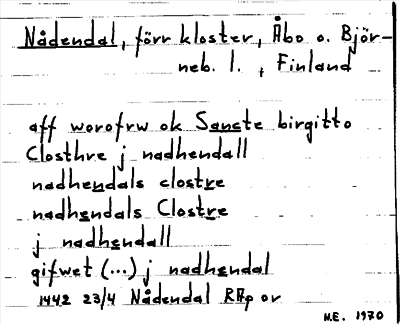 Nådendal, förr kloster, Åbo o. Björ-
neb. l., Finland
aff worofrw ok Sancte birgitto
Closthre j nadhendall
nadhendals clostre
nadhendals Clostre
j nadhendall
gifwet (...) j nadhendal
1442 23/4 Nådendal RAp or
M.E. 1970